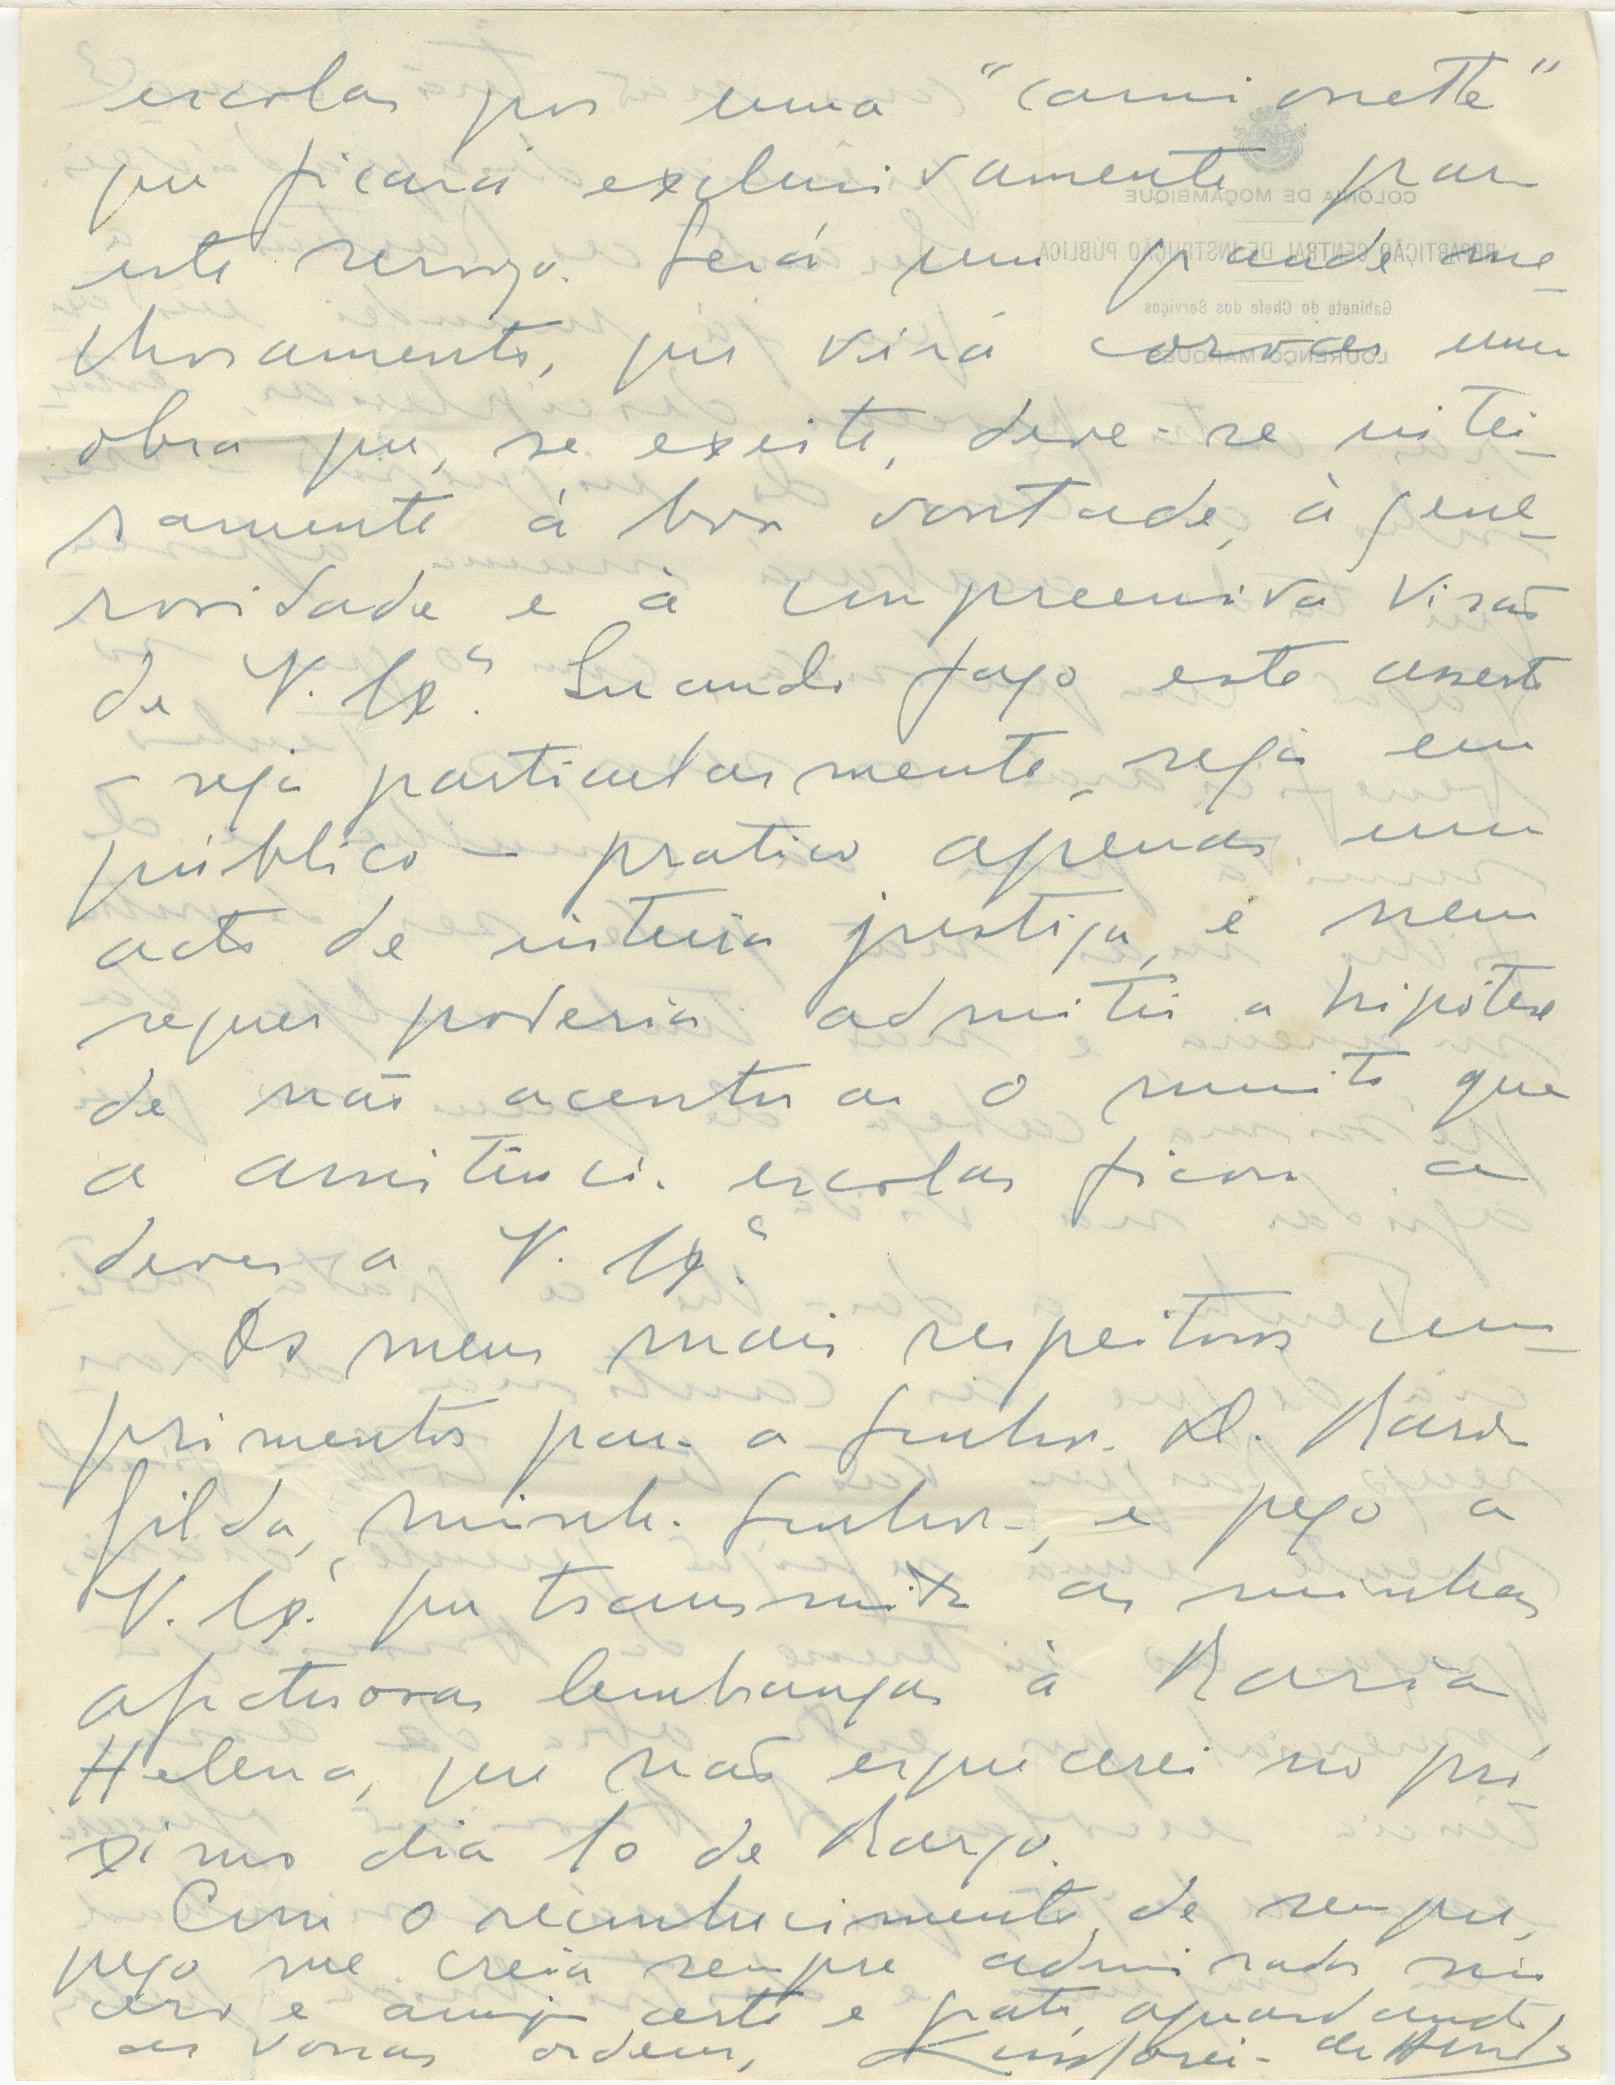 escolar por uma "camionette"
que ficará exclusivamente para
este serviço. Será um grande me-
lhoramento, que virá coroar uma
obra que, se existe, deve-se intei-
ramente à boa vontade, à gene-
rosidade e à compreensiva visão
de V. Exª. Quando faço este asserto
- seja particularmente, seja em
público - pratico apenas um
acto de inteira justiça, e nem
sequer poderia admitir a hipótese
de não acentuar o muito que
a assistência escolar ficou a
dever a V. Exª.
Os meus mais respeitosos cum-
primentos para a Senhora D. Maria
Gilda, minha Senhora, e peço a
V. Exª. que transmita as minhas
afectuosas lembranças à Maria
Helena, que não esquecerei no pró-
ximo dia 10 de Março.
Com o reconhecimento de sempre,
peço me creia sempre admirador sin
cero e amigo certo e grato, aguardando
as vossas ordens,
COLÓNIA DE MOÇAMBIQUE
REPARTIÇÃO CENTRAL DE INSTRUÇÃO PÚBLICA
Gabinete do Chefe dos Serviços
LOURENÇO MARQUES